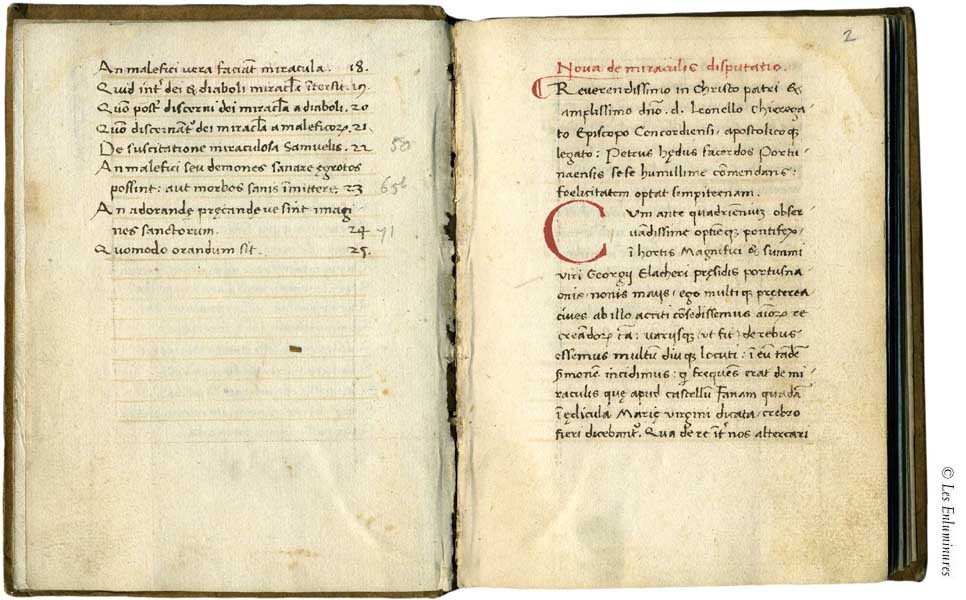 An malefici vera faciāt miracula. 18.
Quid int' dei & diaboli miracl̄a īterſit. 19.
Quō poſt' diſcerni dei miracl̄a a diaboli. 20
Quō diſcernāt' dei miracl̄a a maleficoꝝ. 21.
De ſuſcitatione miraculoſa Samuelis. 22 50
An malefici ſeu demones ſanare ęgrotos
poſſint: aut morbos sanis īmittere. 23 65b
An adorandę pręcandę ve ſint imagi
nes ſanctorum. 24 71
Quomodo orandum ſit. 25.
2
Nova de miraculis diſputatio.
Reverendiſſimo in Chriſto patri &
ampliſſimo dn̄o. d. Leonello Chierega-
to Epiſcopo Concordienſi, apoſtolico qꝫ
legato: Petrus hędus ſacerdos Portu
naenſis ſe ſe humillime cōmendans:
foelicitatem optat ſempiternam.
Cum ante quadrienniū obſer
vādiſſime
ī hortis Magnifici & ſummi
viri Georgii Elacheri pręſidis portusna-
onis, nonis maiis, ego multi qꝫ pręterea
cives ab illo acciti cōſediſſemus aīoꝝ re
creādoꝝ cā: variiſqꝫ (ut fit) de rebus
eſſemus multū diu qꝫ locuti: ī eū tādē
ſermonē incidimus: frequēs erat de mi-
raculis quę apud caſtellū Fanam quadā
ī ędicula Marię virgini dicata, crebro
fieri dicebant'. Qua de re īt' nos altercari
© Les Enluminures